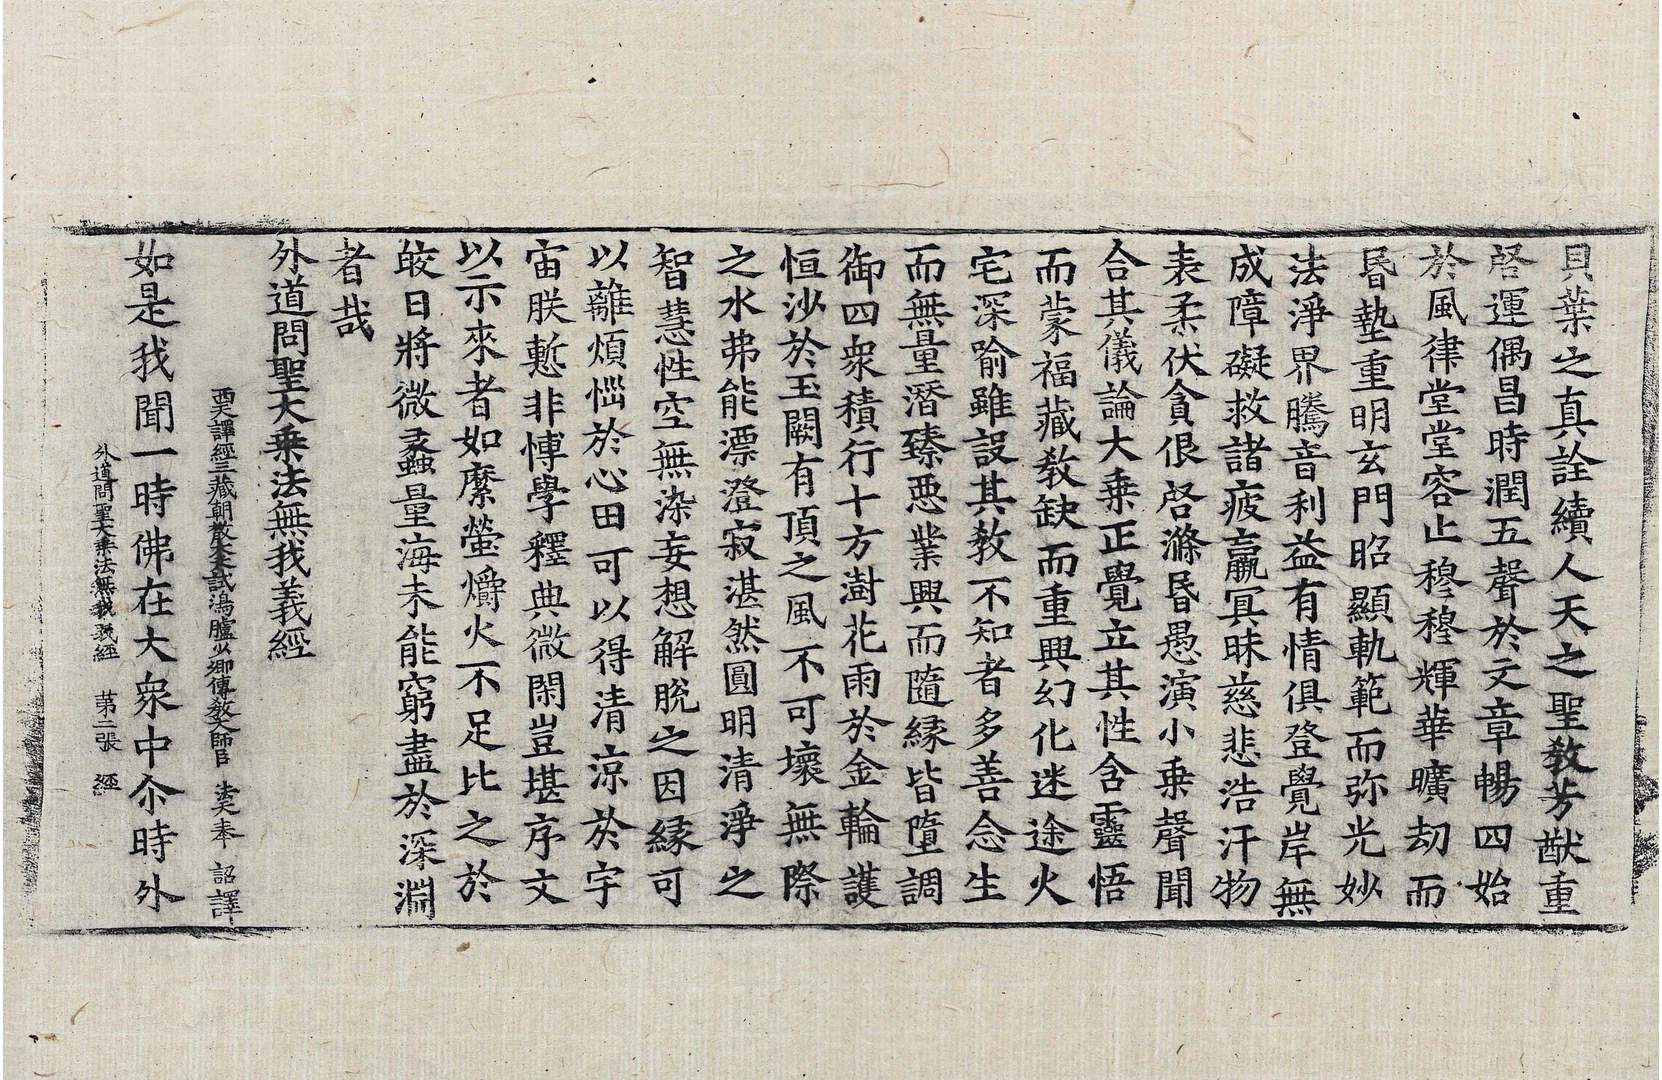 貝葉之真詮續人天之聖教芳猷重
啓運偶昌時潤五聲於文章暢四始
於風律堂堂容止穆穆輝華曠劫而
昏墊重明玄門昭顯軌範而弥光妙
法淨界騰音利益有情俱登覺岸無
成障礙救諸疲羸冥昧慈悲浩汗物
表柔伏貪很啓滌昏愚演小乗聲聞
合其儀論大乗正覺立其性含靈悟
而蒙福藏教缺而重興幻化迷途火
宅深喻雖設其教不知者多善念生
而無量潛臻惡業興而隨縁皆墮調
御四衆積行十方澍花雨於金輪護
恒沙於玉闕有頂之風不可壞無際
之水弗能漂澄寂湛然圓明清淨之
智慧性空無染妄想解脫之因縁可
以離煩惱於心田可以得清涼於宇
宙朕慙非博學釋典微閑豈堪序文
以示來者如縻螢爝火不足比之於
皎日將微蠡量海未能窮盡於深淵
者哉
外道問聖大乗法無我義經
西天譯經三藏朝散大夫試鴻臚少卿傳教大師臣法天奉 詔譯
如是我聞一時佛在大衆中尒時外
外道問聖大乗法無我義經 苐二張 經